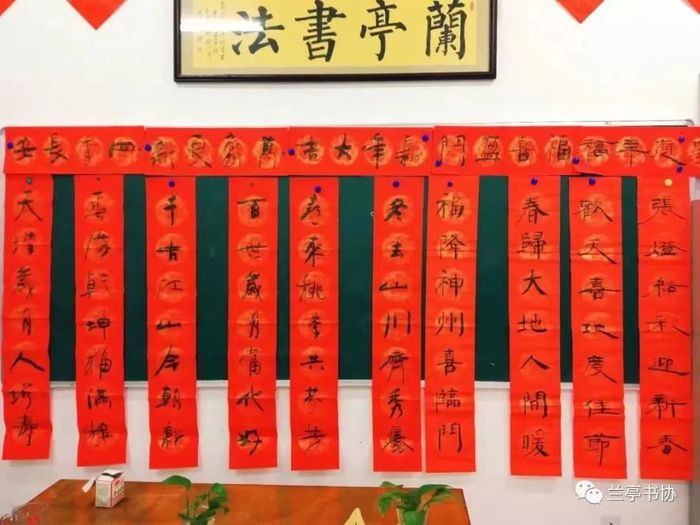 蘭亭書法
福喜盈門
年大吉
萬象更新
四季長安
張燈結彩迎新春
歡天喜地度佳節
春歸大地人間暖
福降神州喜臨門
冬去山川齊秀麗
喜來桃李共芬芳
百世歲月當代好
千古江山今朝新
春滿乾坤福滿樓
天增歲月人增壽
兰亭书协